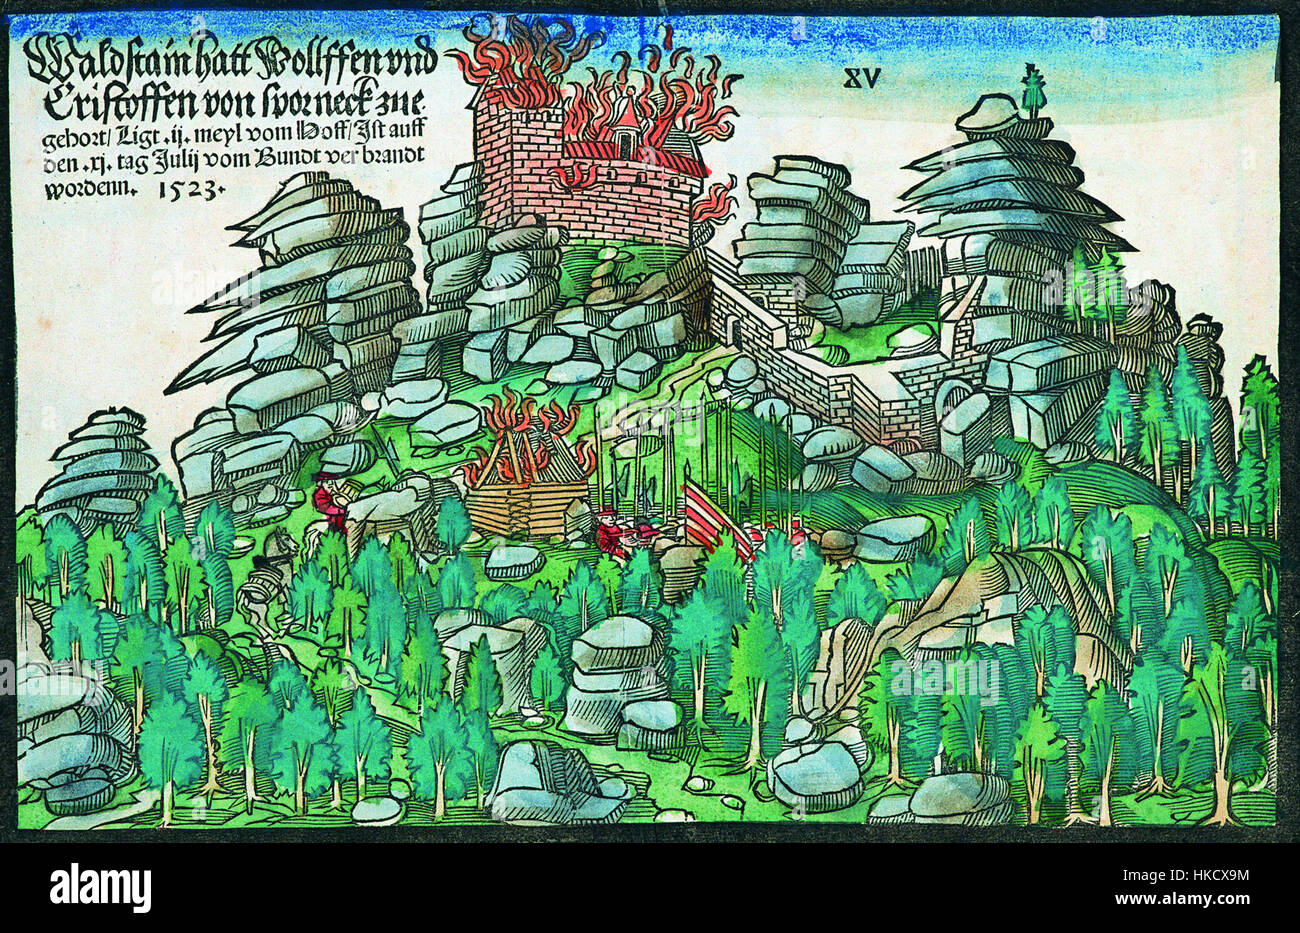 Waldstain hatt Wollffen vnd
Cristoffen von sporneck zue-
gehort/ Ligt .ij. meyl vom Hoff/ Ist auff
den .xj. tag Julij vom Bundt verbrandt
wordenn. 1523.
XV
a
alamy
a
a
alamy stock photo
HKCX9M
www.alamy.com